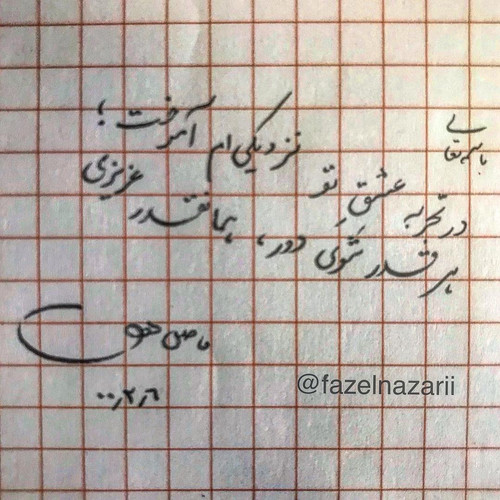 باسمه تعالی
در تجربه عشقِ تو نزدیکی ام آموخت؛
هر قدر شَوی دور، همانقدر عزیزی
فاضل نظری
۰۰٫۲٫۶
@fazelnazarii